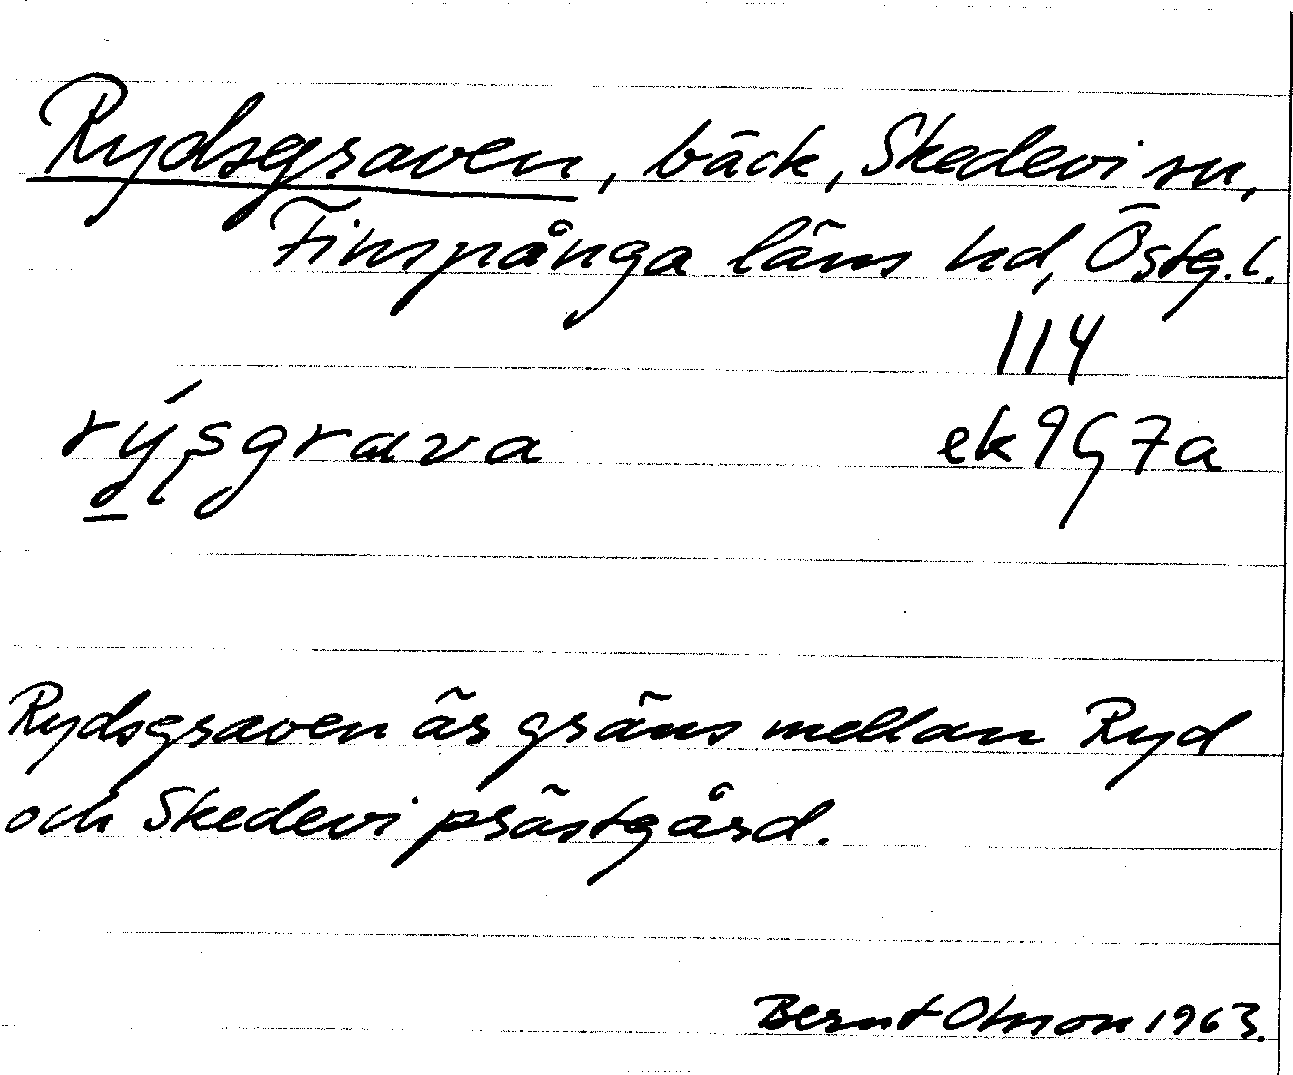 Rydsgraven, bäck, Skedevi sn,
Finspånga läns hd, Östg. l.
114
rýsgrava ek 9G7a
Rydsgraven är gräns mellan Ryd
och Skedevi prästgård.
Bernt Olsson 1963.